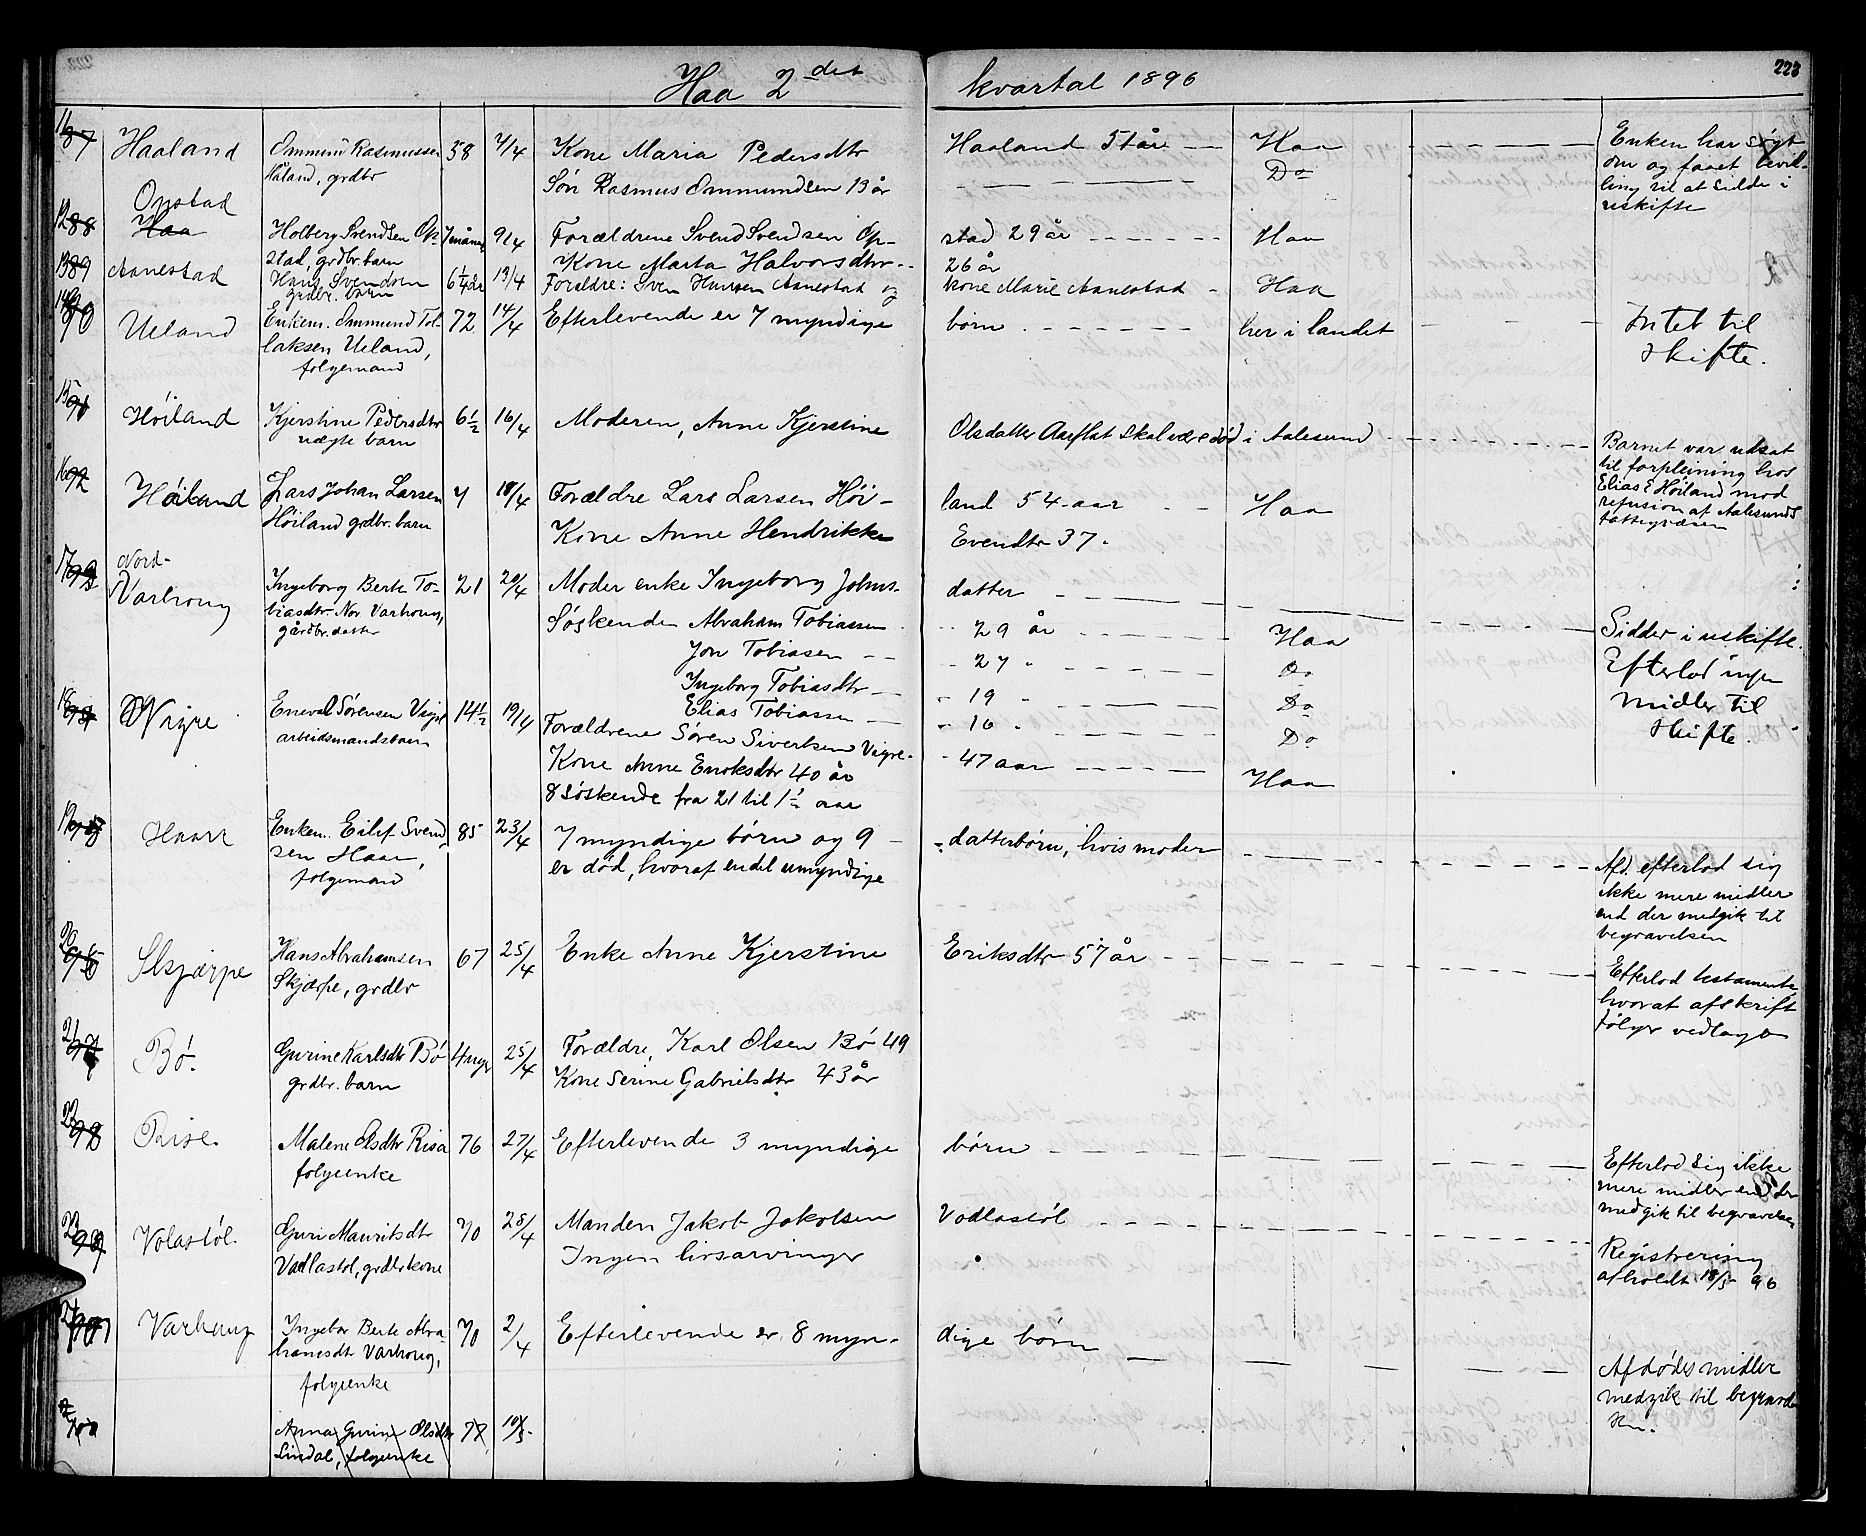 Haa 2det kvartal 1896
223
11 87 Haaland Ommund Rasmussen 58 7/4 Kone Maria Pedersdtr Haaland 51 år Haa Enken har søgt
Håland, grdbr Søn Rasmus Ommundsen 13 år Do om og faaet bevil-
ling til at sidde i
uskifte
Opstad
12 88 Haa Holberg Svendsen Op- 7 måned 9/4 Forældrene Svend Svendsen Op- stad 29 år Haa
stad, grdbr. barn Kone Marta Halvorsdtr 26 år
13 89 Aanestad Hans Svendsen 6 1/4 år 13/4 Forældre: Sven Hansen Aanestad og kone Marie Aanestad Haa
grdbr. barn
14 90 Ueland Enkem. Ommund Tol- 72 14/4 Efterlevende er 7 myndige børn her i landet Intet til
laksen Ueland, skifte.
folgemand
15 91 Höiland Kjerstine Pedersdtr 6 1/2 16/4 Moderen, Anne Kjerstine Olsdatter Aarflot skal være död i Aalesund Barnet var udsat
uægte barn til forpleining hos
Elias E Høiland mod
refusion af Aalesunds
fattigvæsen
16 92 Höiland Lars Johan Larsen 7 18/4 Forældre Lars Larsen Höi- land 54 aar Haa
Höiland grdbr. barn Kone Anne Hendrikke Evendtr 37
17 93 Nord-
Varhoug Ingeborg Berte To- 21 20/4 Moder enke Ingeborg Johns- datter
biasdtr Nor Varhoug, Søskende Abraham Tobiassen 29 år Haa Sidder i uskifte.
gårdbr. datter Jon Tobiasen 27 Do Efterlod ingen
Ingeborg Tobiasdtr 19 Do midler til
Elias Tobiassen 16 Do skifte.
18 94 Vigre Enevol Sörensen Vigre 14 1/2 19/4 Forældrene Sören Sivertsen Vigre 47 aar Haa
arbeidsmandsbarn Kone Anne Enoksdtr 40 år
8 söskende fra 21 til 1 1/2 aar
19 Haar Enkem. Eilif Svend- 85 23/4 7 myndige børn og 9 datterbörn, hvis moder Afd. efterlod sig
sen Haar, er död, hvoraf endel umyndige ikke mere midler
folgemand end der medgik til
begravelsen
20 Skjærpe Hans Abrahamsen 67 25/4 Enke Anne Kjerstine Eriksdtr 57 år Efterlod testamente
Skjærpe, grdbr hvorat afskrift
følger vedlagt
21 Bö Gurine Karlsdtr Bö 4 mgr 25/4 Forældre, Karl Olsen Bö 49
grdbr. barn Kone Serine Gabrielsdtr 43 år
22 98 Risa Malene Olsdtr Risa 76 27/4 Efterlevende 3 myndige börn Efterlod sig ikke
folgeenke mere midler end der
medgik til begravelsen
23 99 Volastöl Guri Mauritsdtr 70 28/4 Manden Jakob Jakobsen Vodlastöl Registrering
Vadlastöl, grdbrkone Ingen livsarvinger afholdt 18/5 96
24 Varhaug Ingebor Berte Abra- 70 2/4 Efterlevende er 8 myn- dige börn Afdödes midler
hamsdtr Varhoug, medgik til begravel-
folgeenke sen.
100 Anna Gurine Olsdtr 77 10/5
Lindal, folgeenke